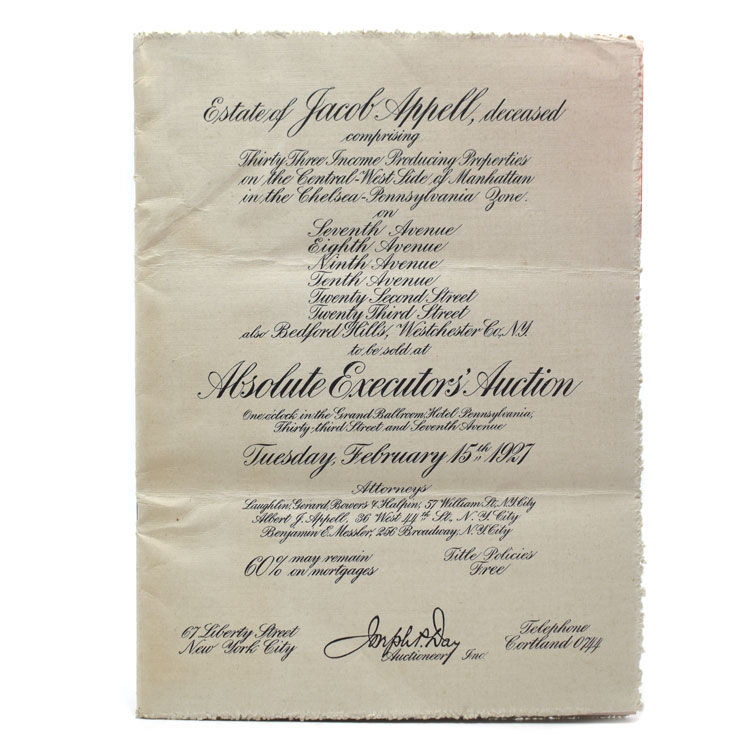 Estate of Jacob Appell, deceased
comprising
Thirty Three Income Producing Properties
on the Central-West Side of Manhattan
in the Chelsea-Pennsylvania Zone.
on
Seventh Avenue
Eighth Avenue
Ninth Avenue
Tenth Avenue
Twenty Second Street
Twenty Third Street
also Bedford Hills, Westchester Co., N.Y.
to be sold at
Absolute Executors' Auction
One o'clock in the Grand Ballroom, Hotel Pennsylvania,
Thirty-third Street and Seventh Avenue
Tuesday, February 15th, 1927
Attorneys
Laughlin, Gerard, Bowers & Halpin, 57 William St., N.Y. City
Albert J. Appell, 36 West 44th St., N.Y. City
Benjamin E. Messler, 256 Broadway, N.Y. City
60% may remain on mortgages
Title Policies Free
67 Liberty Street
New York City
Joseph P. Day
Auctioneer Inc.
Telephone
Cortland 0744